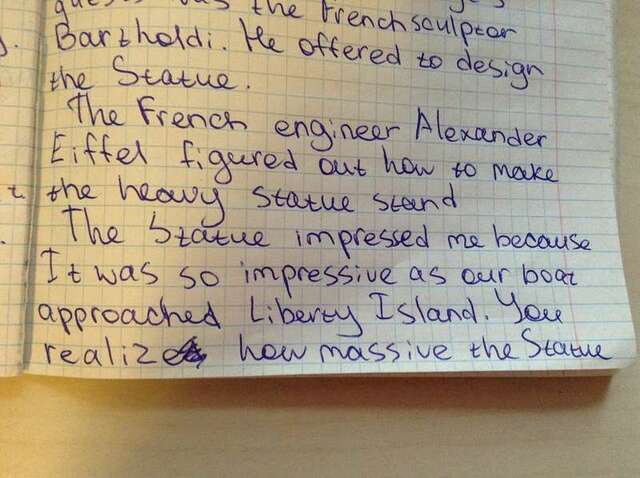 the French sculptor
Bartholdi. He offered to design
the Statue.
The French engineer Alexander
Eiffel figured out how to make
the heavy statue stand
The Statue impressed me because
It was so impressive as our boat
approached Liberty Island. You
realize how massive the Statue